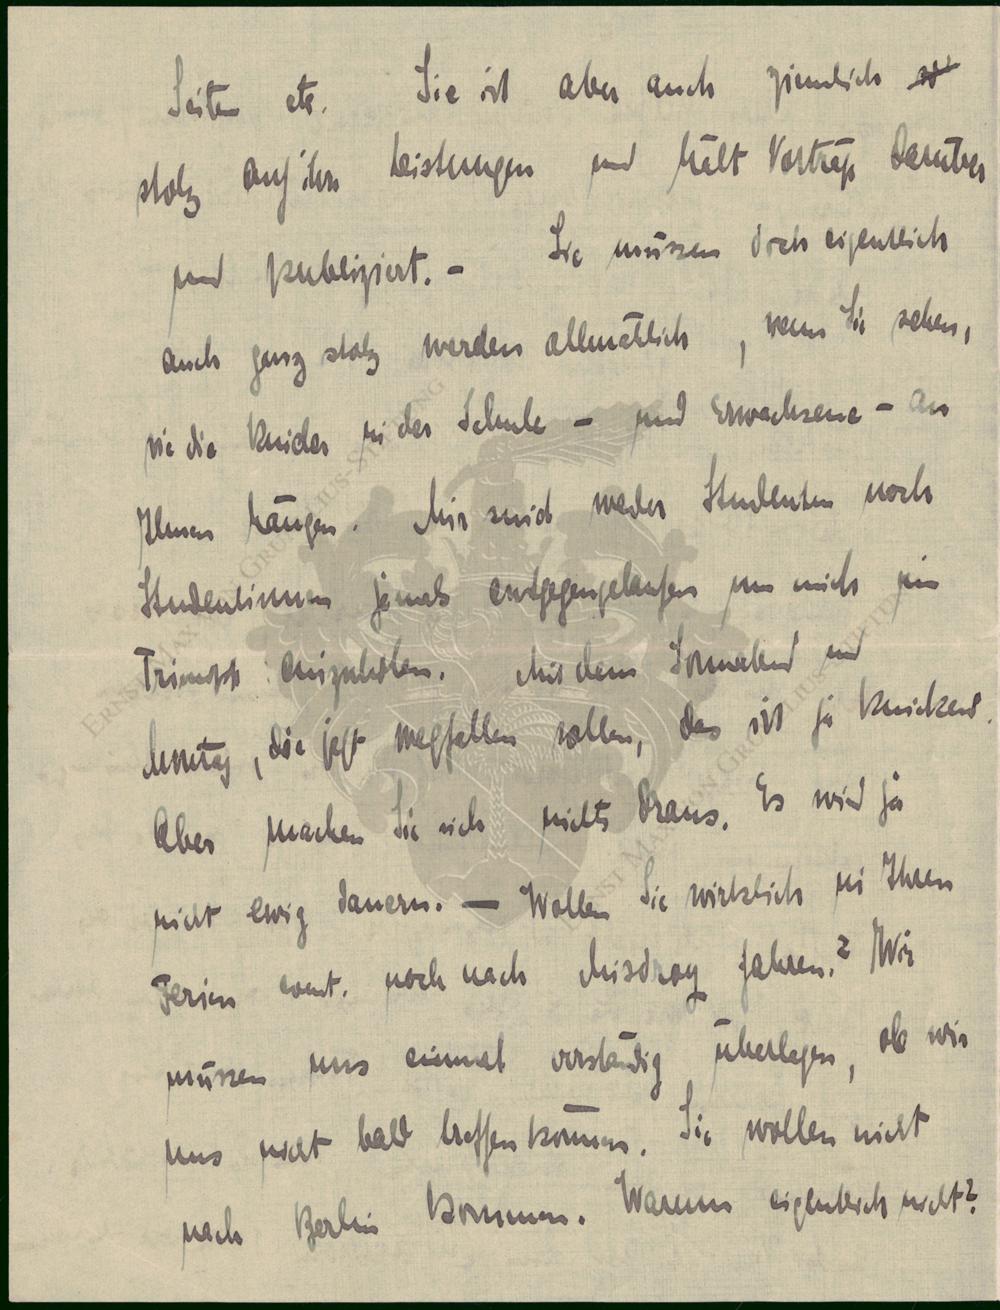 Seiten etc. Sie ist aber auch ziemlich
stolz auf ihre Leistungen und hält Vorträge darüber
und publiziert. – Sie müssen doch eigentlich
auch ganz stolz werden allmählich, wenn Sie sehen,
wie die Kinder in der Schule – und Erwachsene – an
Ihnen hängen. Mir sind weder Studenten noch
Studentinnen jemals entgegengelaufen um mich im
Triumph einzuholen. Mit dem Sonnabend und
Montag, die jetzt wegfallen sollen, das ist ja knickend.
Aber machen Sie sich nichts draus. Es wird ja
nicht ewig dauern. — Wollen Sie wirklich in Ihren
Ferien event. noch nach Misdroy fahren.? Wir
müssen uns einmal verständig überlegen, ob wir
uns nicht bald treffen können. Sie wollen nicht
nach Berlin kommen. Warum eigentlich nicht?
ERNST MAX VON GRUNELIUS-STIFTUNG
ERNST MAX VON GRUNELIUS-STIFTUNG